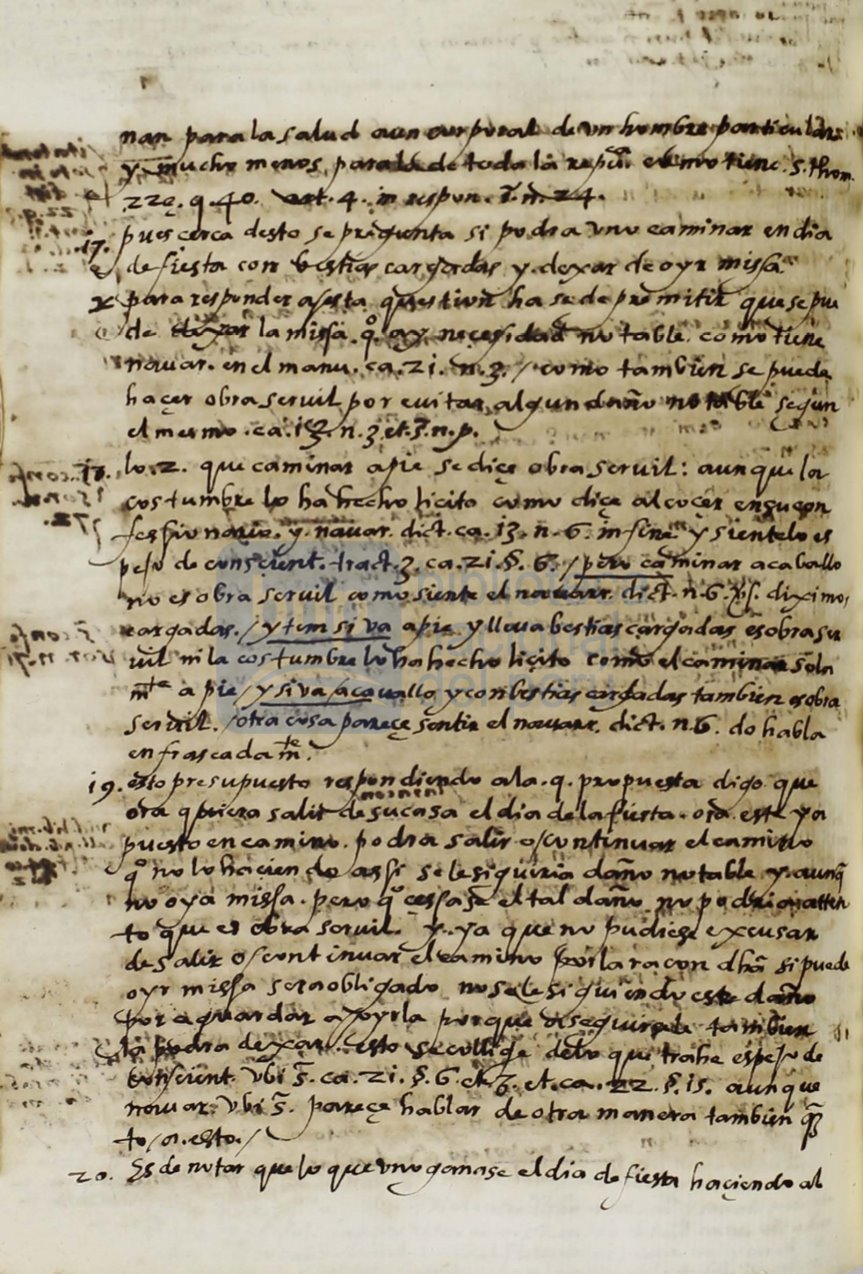 nan para la salud aun corporal de un hombre particular
y mucho menos para la de toda la repu. como tiene s. thom.
22ę. q. 40. art. 4. in respon. n. 24.
17. pues cerca desto se pregunta si podra uno caminar en dia
de fiesta con bestias cargadas y dexar de oyr missa
para responder a esta question ha se de premitir que se pue
de dexar la missa qº. ay necesidad notable. como tiene
nauar. en el manu. ca. 21. n. 3. / como tambien se puede
haçer obra seruil por euitar algun daño notable segun
el mesmo. ca. 13. n. 3 et. n. p.
18. lo. 2. que caminar a pie se diçe obra seruil: aunque la
costumbre lo ha hecho liçito como diçe alcoçer en su con
fessionario. y. nauar. dict. ca. 13. n. 6. in fine y sientelo es
pejo de conscient. tract. 3. ca. 21. §. 6. / pero caminar a cauallo
no es obra seruil como siente el nauarr. dict. n. 6. diximos
cargadas. / ytem si va a pie y lleua bestias cargadas es obra ser
uil ni la costumbre lo ha hecho liçito como el caminar sola
mte a pie / y si va / a cauallo y con bestias cargadas tambien es obra
seruil. / otra cosa pareçe sentir el nauarr. dict. n. 6. do habla
enfrascadamte.
19. esto presupuesto respondiendo a la. q. propuesta digo que
ora quiera salir de su casa el dia de la fiesta. ora este ya
puesto en camino. podra salir o / continuar el camino
qº no lo haciendo assi se le siguiria daño notable y. aunq̃
no oya missa. pero qº cessase el tal daño no podria atten
to que es obra seruil. y. ya que no pudiese excusar
de salir o / continuar el camino por la raçon dha si puede
oyr missa sera obligado no se le siguiendo este daño
por aguardar a / oyrla porque si se siguiese tambien
la podra dexar. esto se collige de lo que trahe espejo de
conscient. vbi s. ca. 21. §. 6. et. 3. et. ca. 22. §. 15. aunque
nauar. vbi s. pareçe hablar de otra manera tambien
to / a. esto. /
20. Es de notar que lo que uno ganase el dia de fiesta haçiendo al